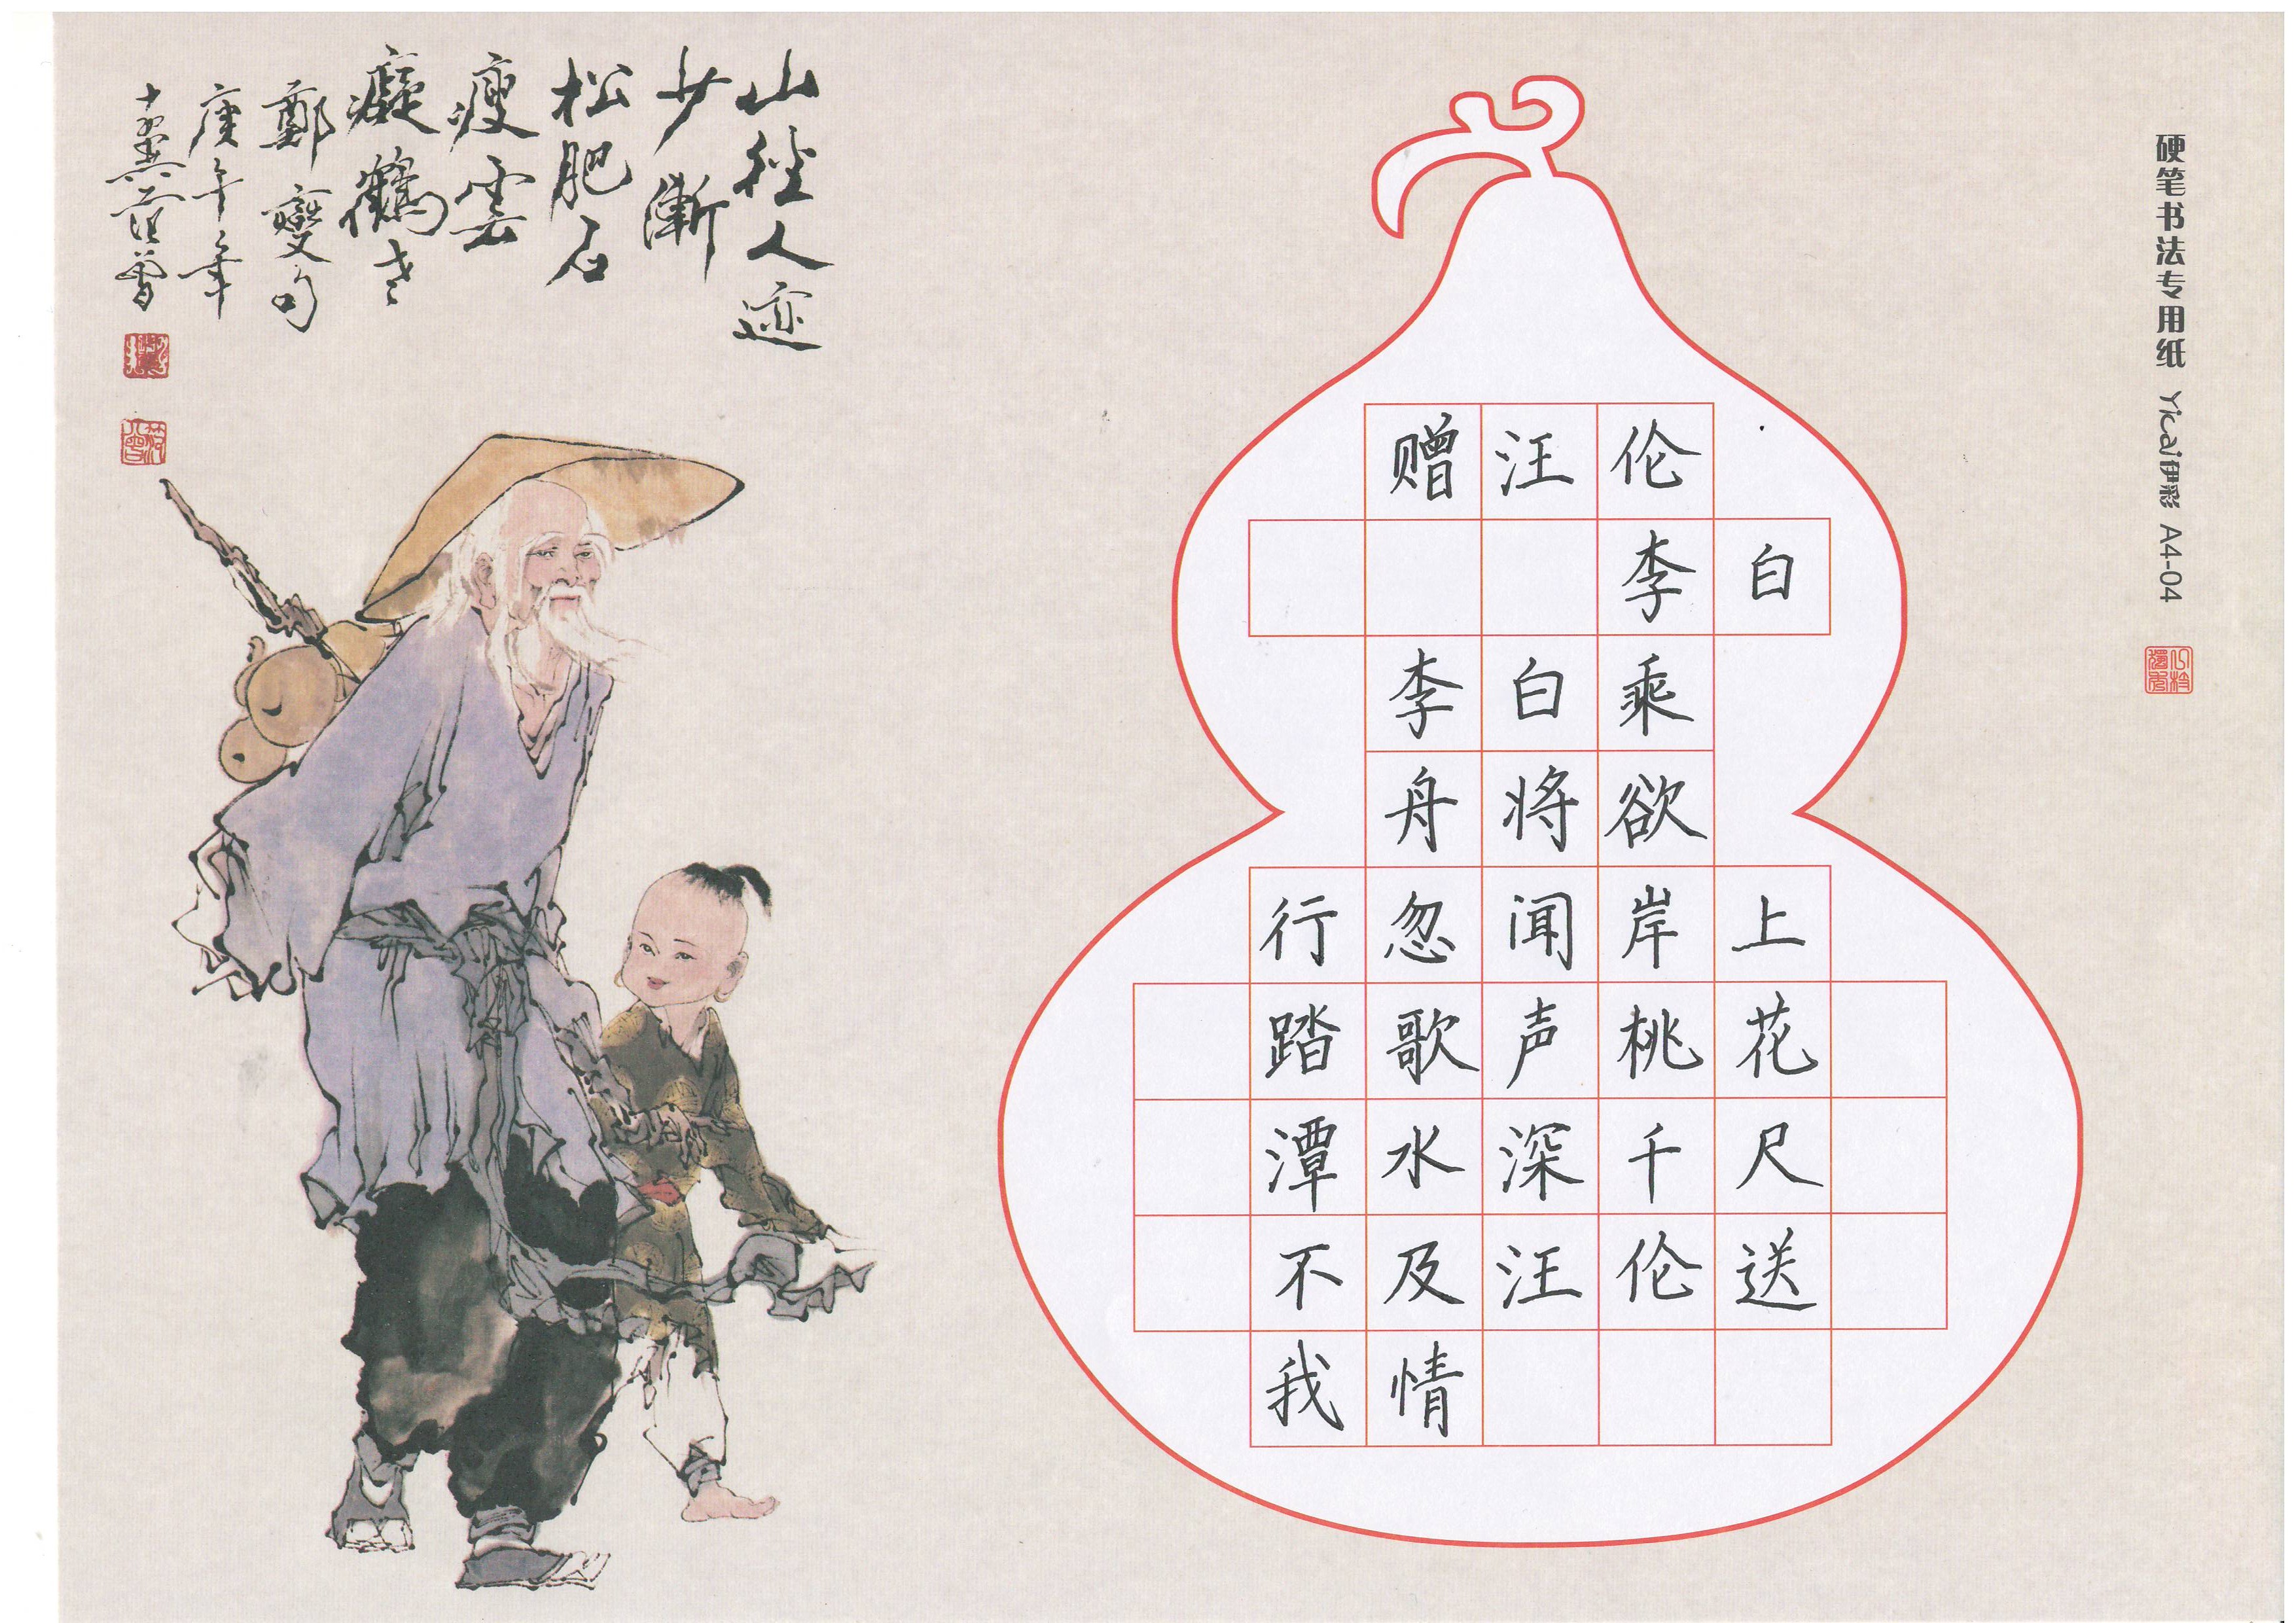 山径人迹
少漸
松肥石
瘦雲
癡鶴老
鄭燮句
庚午年
十翼范曾
赠汪伦
李白
李白乘
舟将欲
行忽闻岸上
踏歌声桃花
潭水深千尺
不及汪伦送
我情
硬笔书法专用纸 Yicai伊彩 A4-04